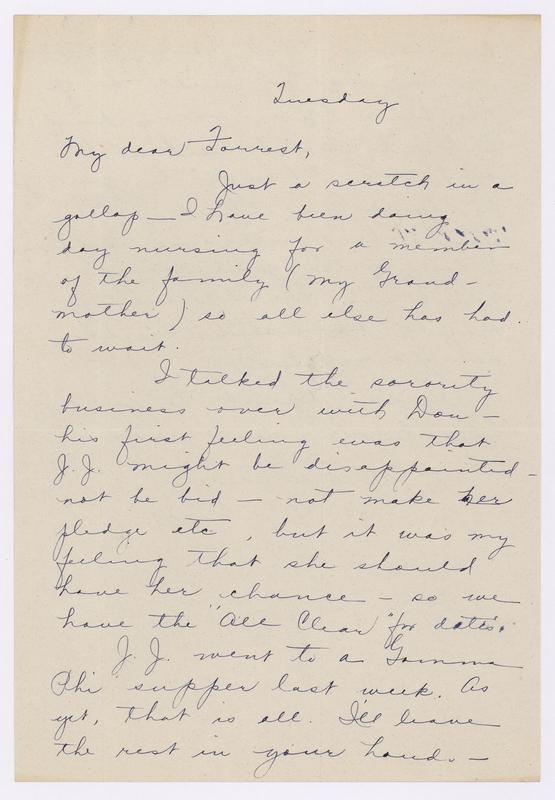 Tuesday
My dear Forrest,
Just a scratch in a
gallop — I have been doing
day nursing for a member
of the family (my Grand-
mother) so all else has had
to wait.
I talked the sorority
business over with Don —
his first feeling was that
J.J. might be disappointed —
not be bid — not make her
pledge etc, but it was my
feeling that she should
have her chance — so we
have the "All Clear" for dates.
J.J. went to a Gamma
Phi supper last week. As
yet, that is all. I'll leave
the rest in your hands. —